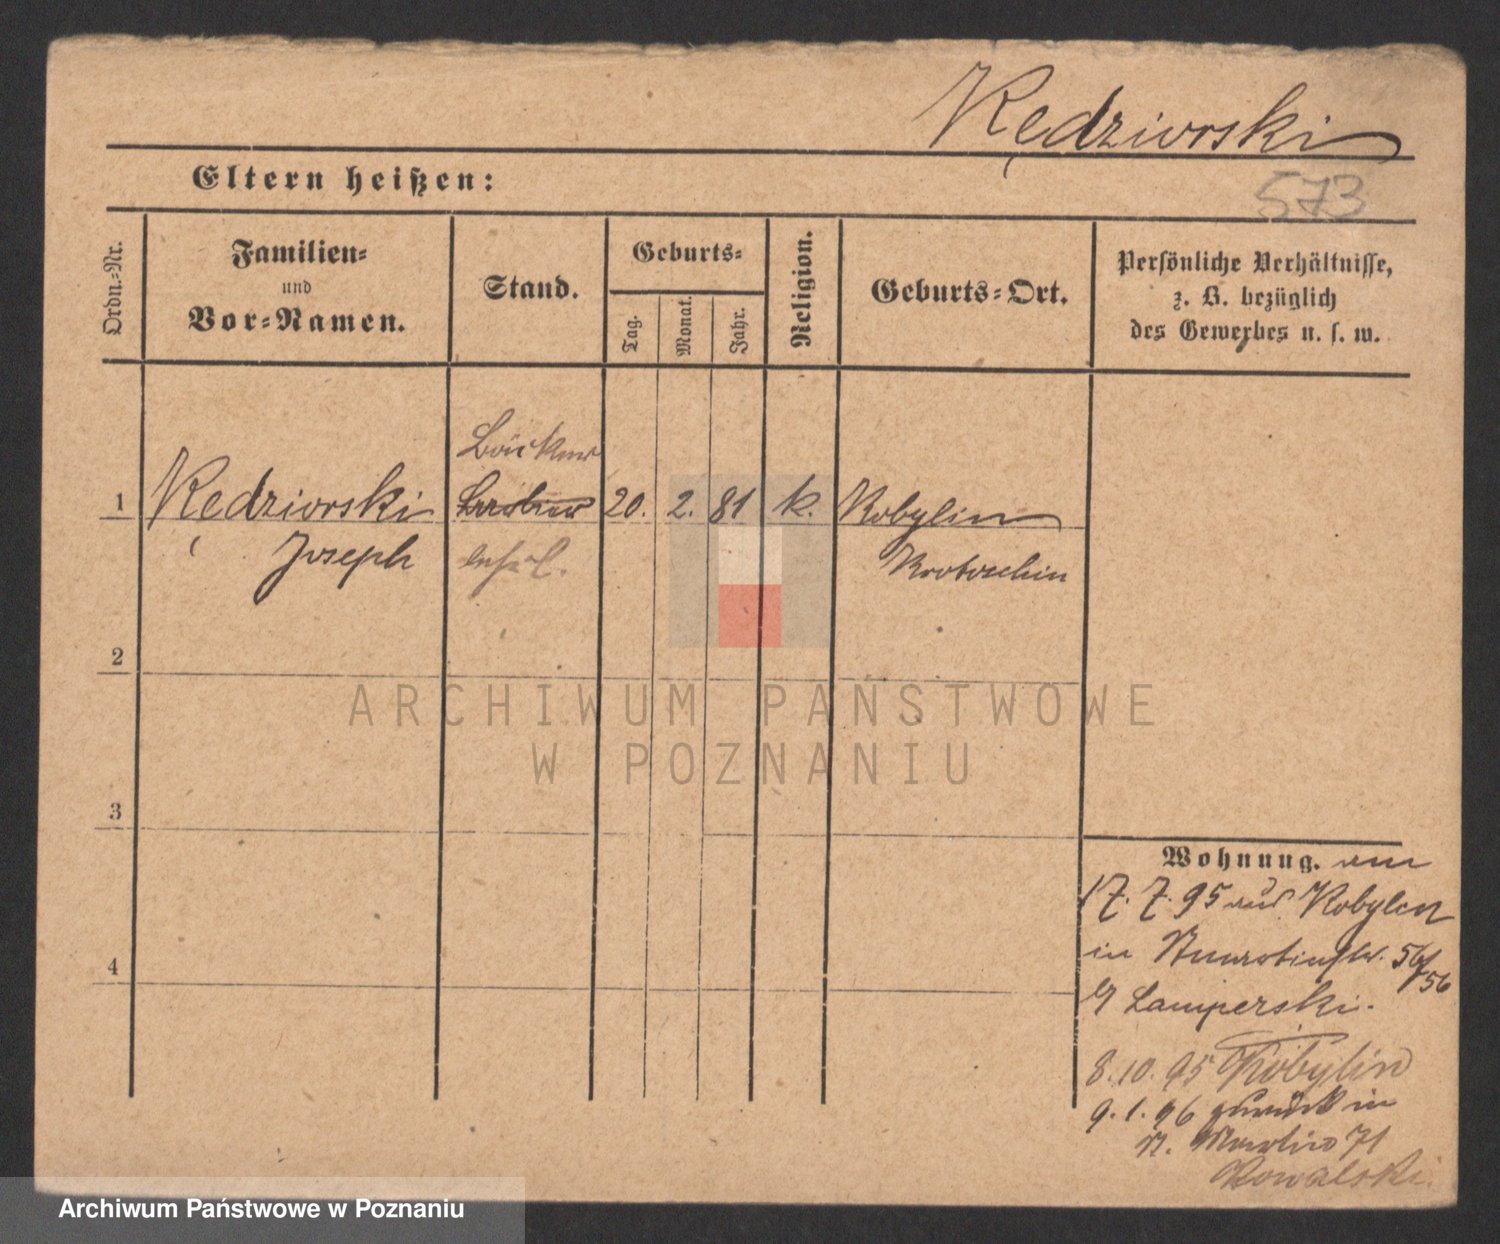 Kędziorski
573
Eltern heißen:
Ordn.-Nr.
Familien-
und
Vor-Namen.
Stand.
Geburts-
Tag.
Monat.
Jahr.
Religion.
Geburts-Ort.
Persönliche Verhältnisse,
z. B. bezüglich
des Gewerbes u. s. w.
1
Kędziorski
Joseph
20.
2.
81
k.
Kobylin
Krotoschin
2
3
4
ARCHIWUM PAŃSTWOWE
W POZNANIU
Wohnung. am
17. 7. 95 aus Kobylin
in 56/56
Lamperski.
8. 10. 95 Kobylin
9. 1. 96 zurück in
St. Martin 71
Kowalski.
Archiwum Państwowe w Poznaniu